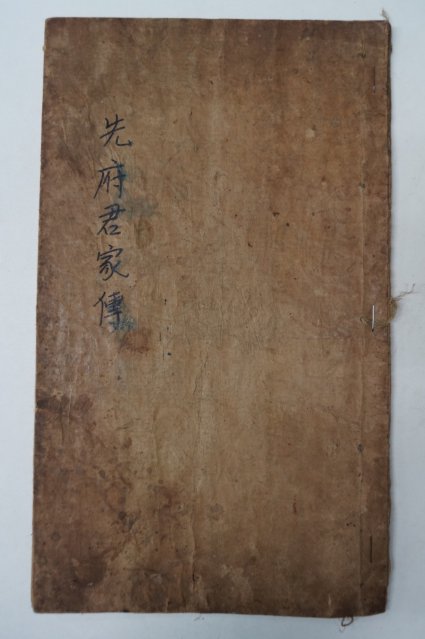 先府君家傳